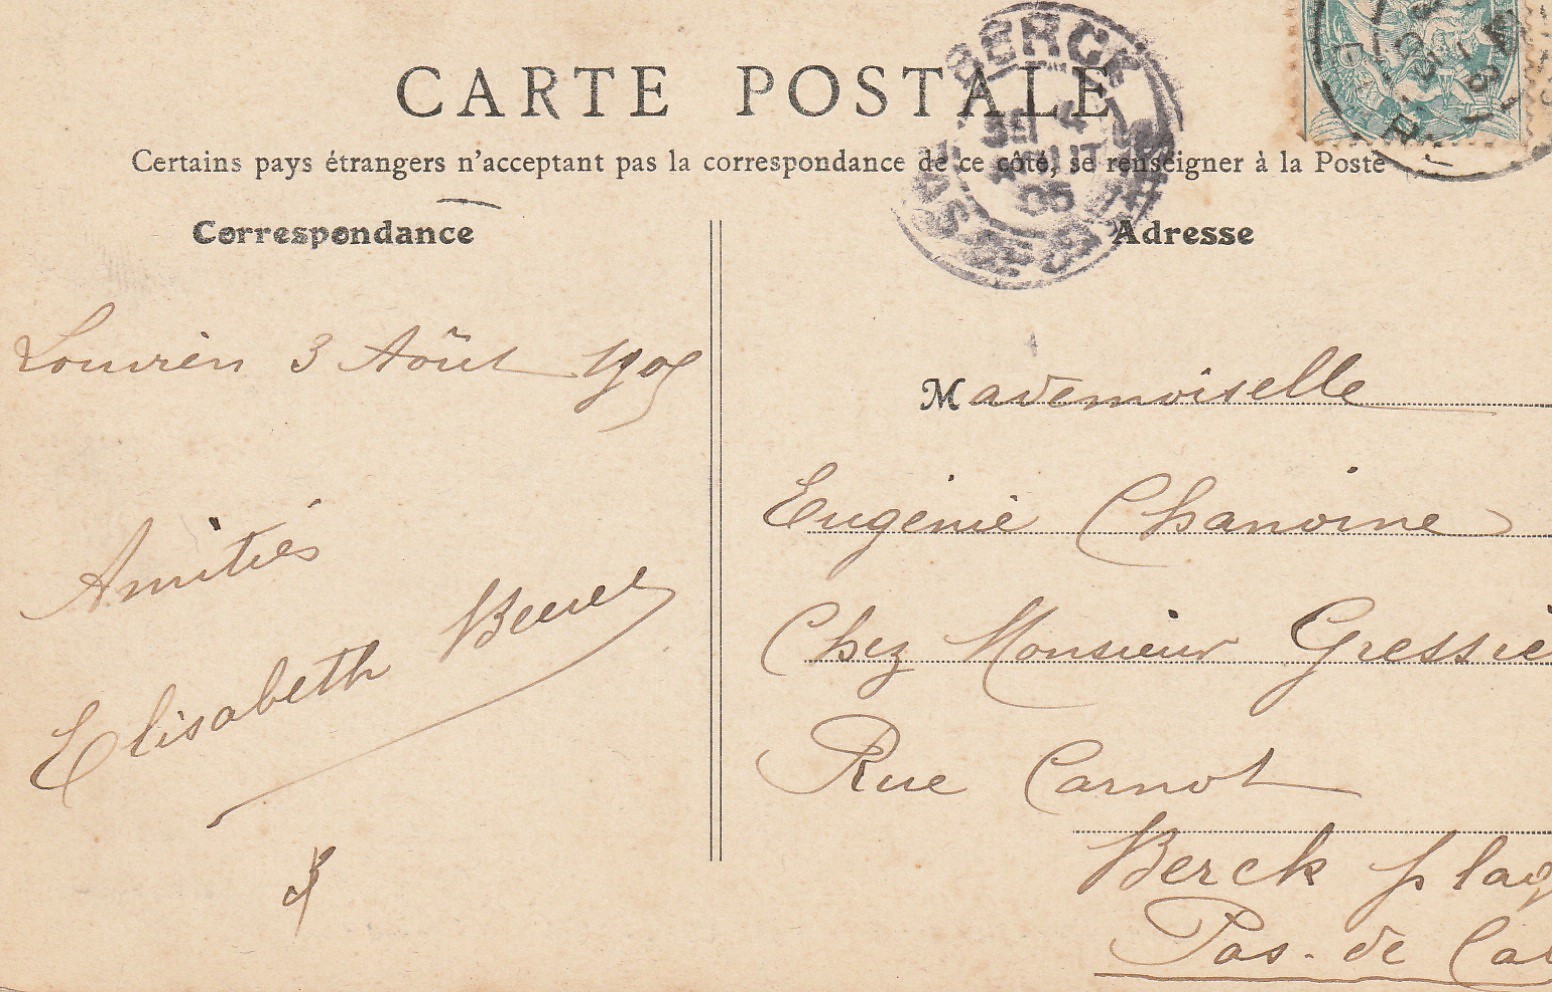 CARTE POSTALE
Certains pays étrangers n'acceptant pas la correspondance de ce côté, se renseigner à la Poste
Correspondance
Adresse
4
AOUT
05
Août 1905
Amitiés
Elisabeth
Mademoiselle
Eugénie Chanoine
Chez Monsieur Gressie
Rue Carnot
Berck plag
Pas-de Cal